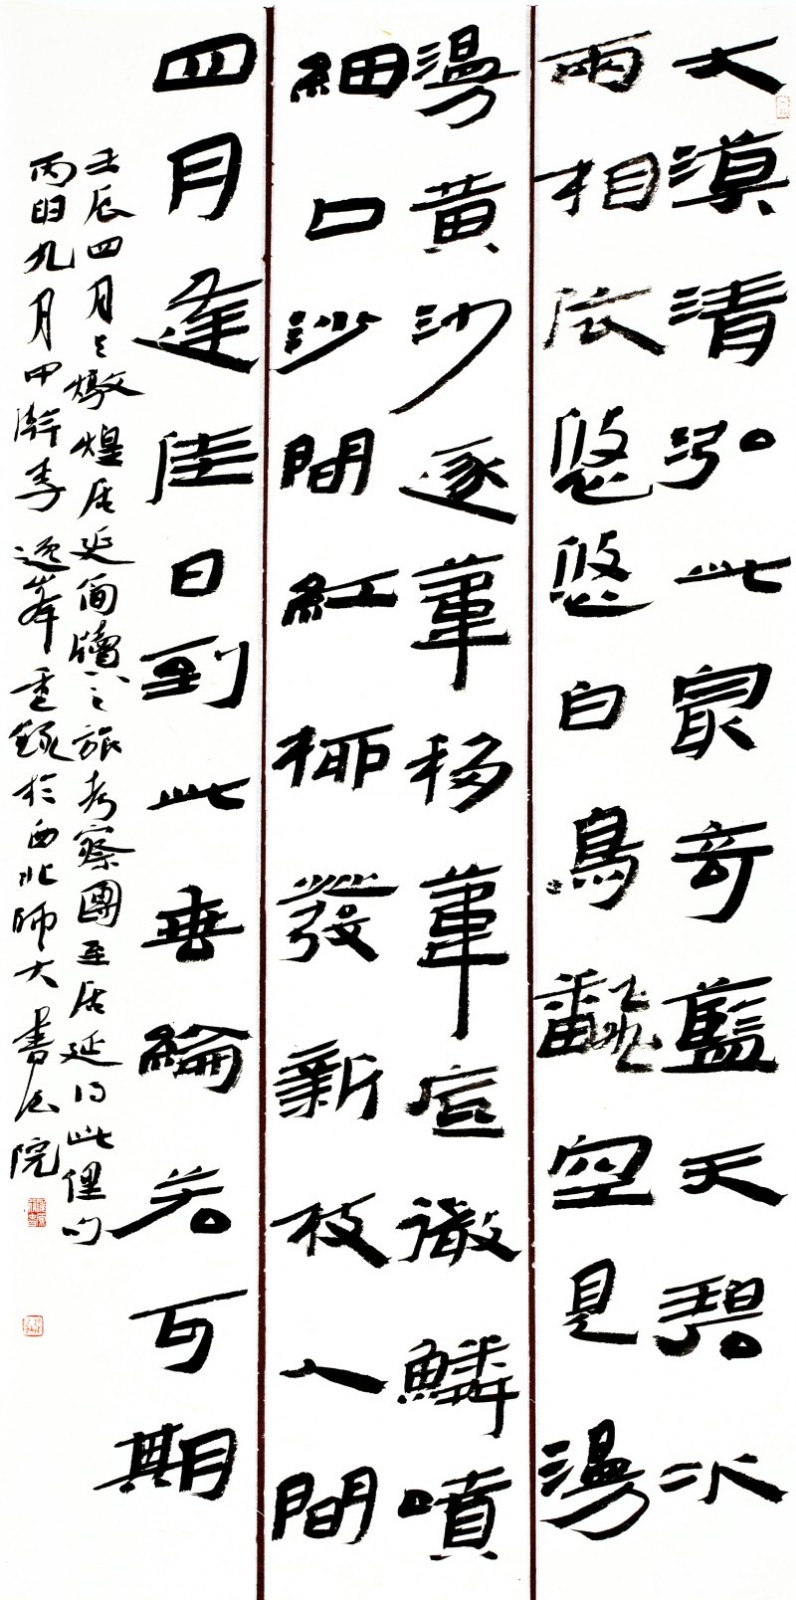 大漠清泓此最奇藍天碧水
兩相依悠悠白鳥翻空見漫
漫黃沙逐葦移葦底微鱗噴
細口沙間紅柳發新枝人間
四月逢佳日到此垂綸若可期
壬辰四月之燉煌居延簡牘之旅考察團至居延得此俚句
丙申九月中澣李逸峯重錄於西北師大書法院